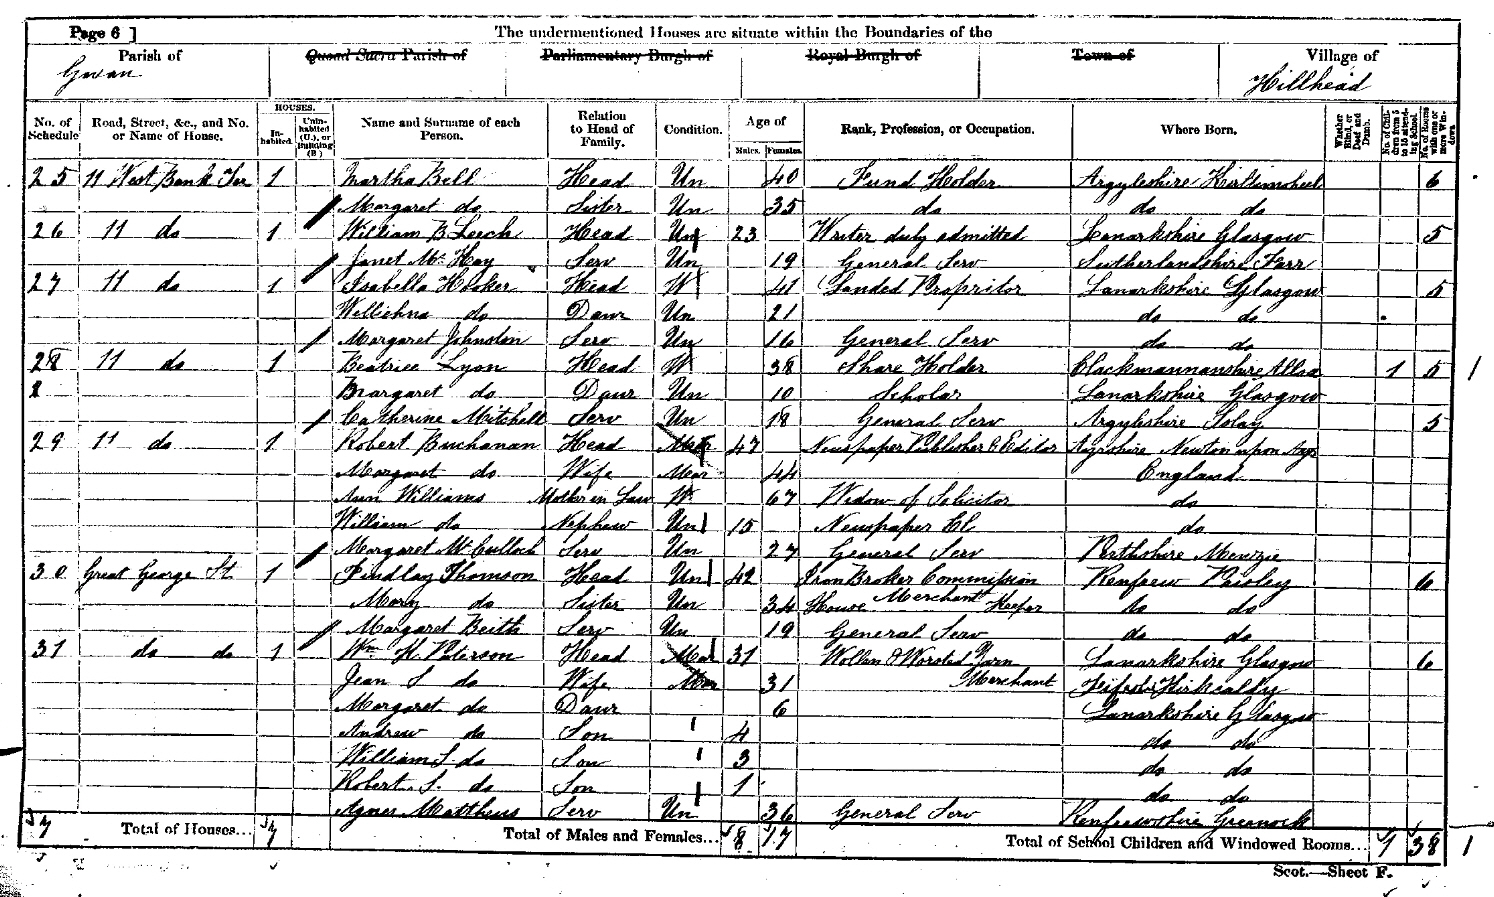 Page 6 ] The undermentioned Houses are situate within the Boundaries of the
Parish of Quoad Sacra Parish of Parliamentary Burgh of Royal Burgh of Town of Village of
Govan Hillhead
No. of Schedule Road, Street, &c., and No. or Name of House. HOUSES. Inhabited. Uninhabited (U.), or Building (B) Name and Surname of each Person. Relation to Head of Family. Condition. Age of Males. Females. Rank, Profession, or Occupation. Where Born. Whether Blind, or Deaf and Dumb. No. of Children from 5 to 15 attending School. No. of Rooms with one or more Windows
25 11 West Bank Ter 1 Martha Bell Head Un 40 Fund Holder Argyleshire 6
Margaret do Sister Un 35 do do do
26 11 do 1 William B Leech Head Un 23 Writer duly admitted Lanarkshire Glasgow 5
Janet Mc Hay Serv Un 19 General Serv Sutherlandshire Farr
27 11 do 1 Isabella Hooker Head W 41 Landed Propritor Lanarkshire Glasgow 5
do Daur Un 21 do do
Margaret Johnston Serv Un 16 General Serv do do
28 11 do 1 Beatrice Lyon Head W 38 Share Holder Clackmannanshire Alloa 1 5 1
Margaret do Daur Un 10 Scholar Lanarkshire Glasgow
Catherine Mitchell Serv Un 18 General Serv Argyleshire 5
29 11 do 1 Robert Buchanan Head Mar 47 Newspaper Publisher & Editor Ayrshire Newton upon Ayr
Margaret do Wife Mar 44 England
Ann Williams Mother in Law W 67 Widow of Solicitor do
William do Nephew Un 15 Newspaper Cl do
Margaret McCulloch Serv Un 27 General Serv Perthshire Menzie
30 Great George St 1 Findlay Thomson Head Un 42 Iron Broker Commission Merchant Renfrew Paisley 6
Mary do Sister Un 34 House Keeper do do
Margaret Beith Serv Un 19 General Serv do do
31 do do 1 Wm H. Paterson Head Mar 31 Wollen & Worsted Yarn Lanarkshire Glasgow 6
Jean S do Wife Mar 31 Merchant Fifesh Kirkcaldy
Margaret do Daur 6 Lanarkshire Glasgow
Andrew do Son 4 do do
William S. do Son 3 do do
Robert S. do Son 1 do do
Agnes Matthews Serv Un 36 General Serv Renfrewshire Greenock
7 Total of Houses... 7 Total of Males and Females... 8 17 Total of School Children and Windowed Rooms... 1 38 1
Scot.—Sheet F.